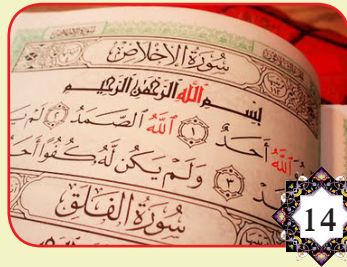 سُورَةُ الإِخْلَاصِ
بِسْمِ اللَّهِ الرَّحْمَٰنِ الرَّحِيمِ
اللَّهُ أَحَدٌ ١ اللَّهُ الصَّمَدُ ٢ لَمْ
٣ وَلَمْ يَكُن لَّهُ كُفُوًا
سُورَةُ الْفَلَقِ
14